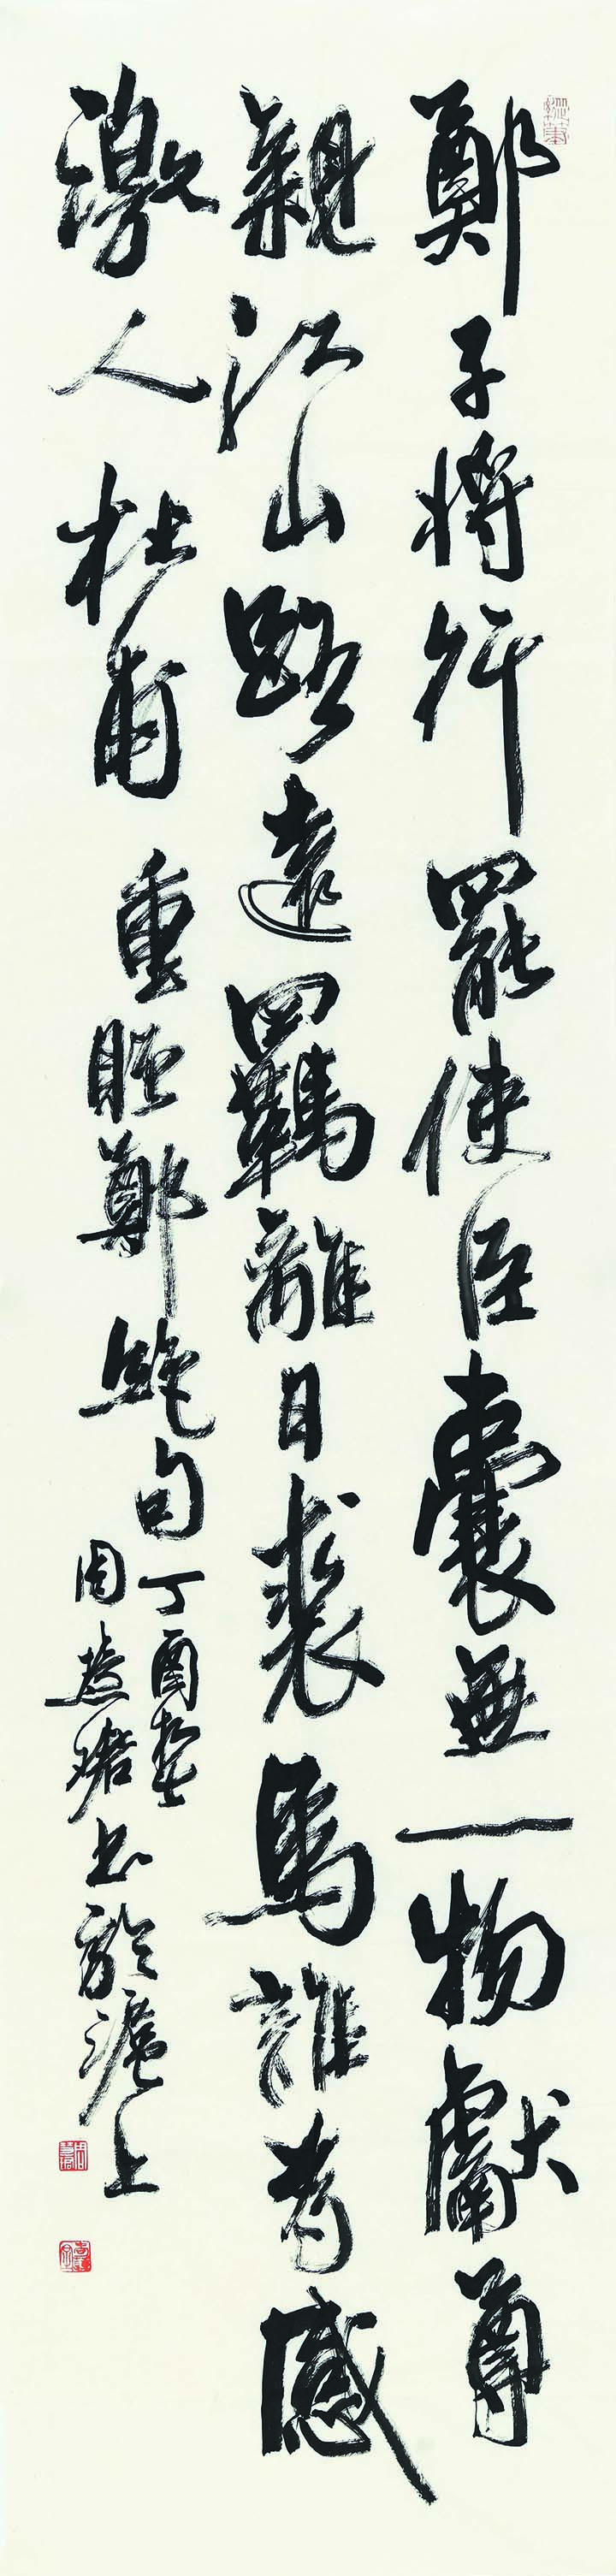 鄭子將行罷使臣囊無一物獻尊
親江山路遠羈離日裘馬誰為感
激人 杜甫 重贈鄭絕句 丁酉
周慧珺書於滬上